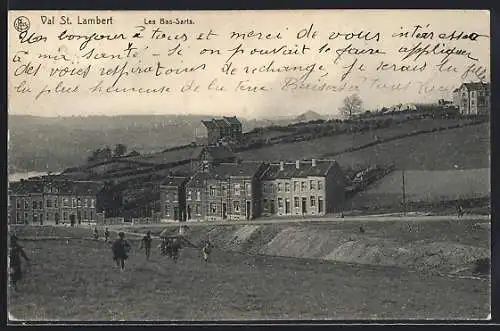 Val St. Lambert Les Bas-Sarts.
Un bonjour à tous et merci de vous intéresser
à ma santé - si on pouvait se faire appliquer
des voies respiratoires de rechange, je serais
la plus heureuse de la terre Baisers à tous